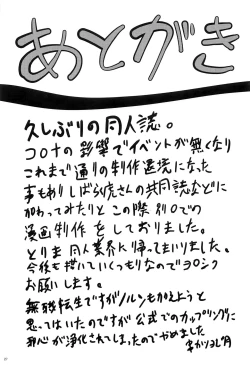 あとがき
久しぶりの同人誌。
コロナの影響でイベントが無くなり
これまで通りの制作環境になった
事もありしばらく虎さんの共同誌などに
加わってみたりとこの際別口での
漫画制作をしておりました。
とりま同人業界に帰ってまいりました。
今後も描いていくつもりなのでヨロシク
お願いします。
無職転生ですがノルンも加えようと
思っていたのですが公式でのカップリングに
邪心が浄化されてしまったのでやめました